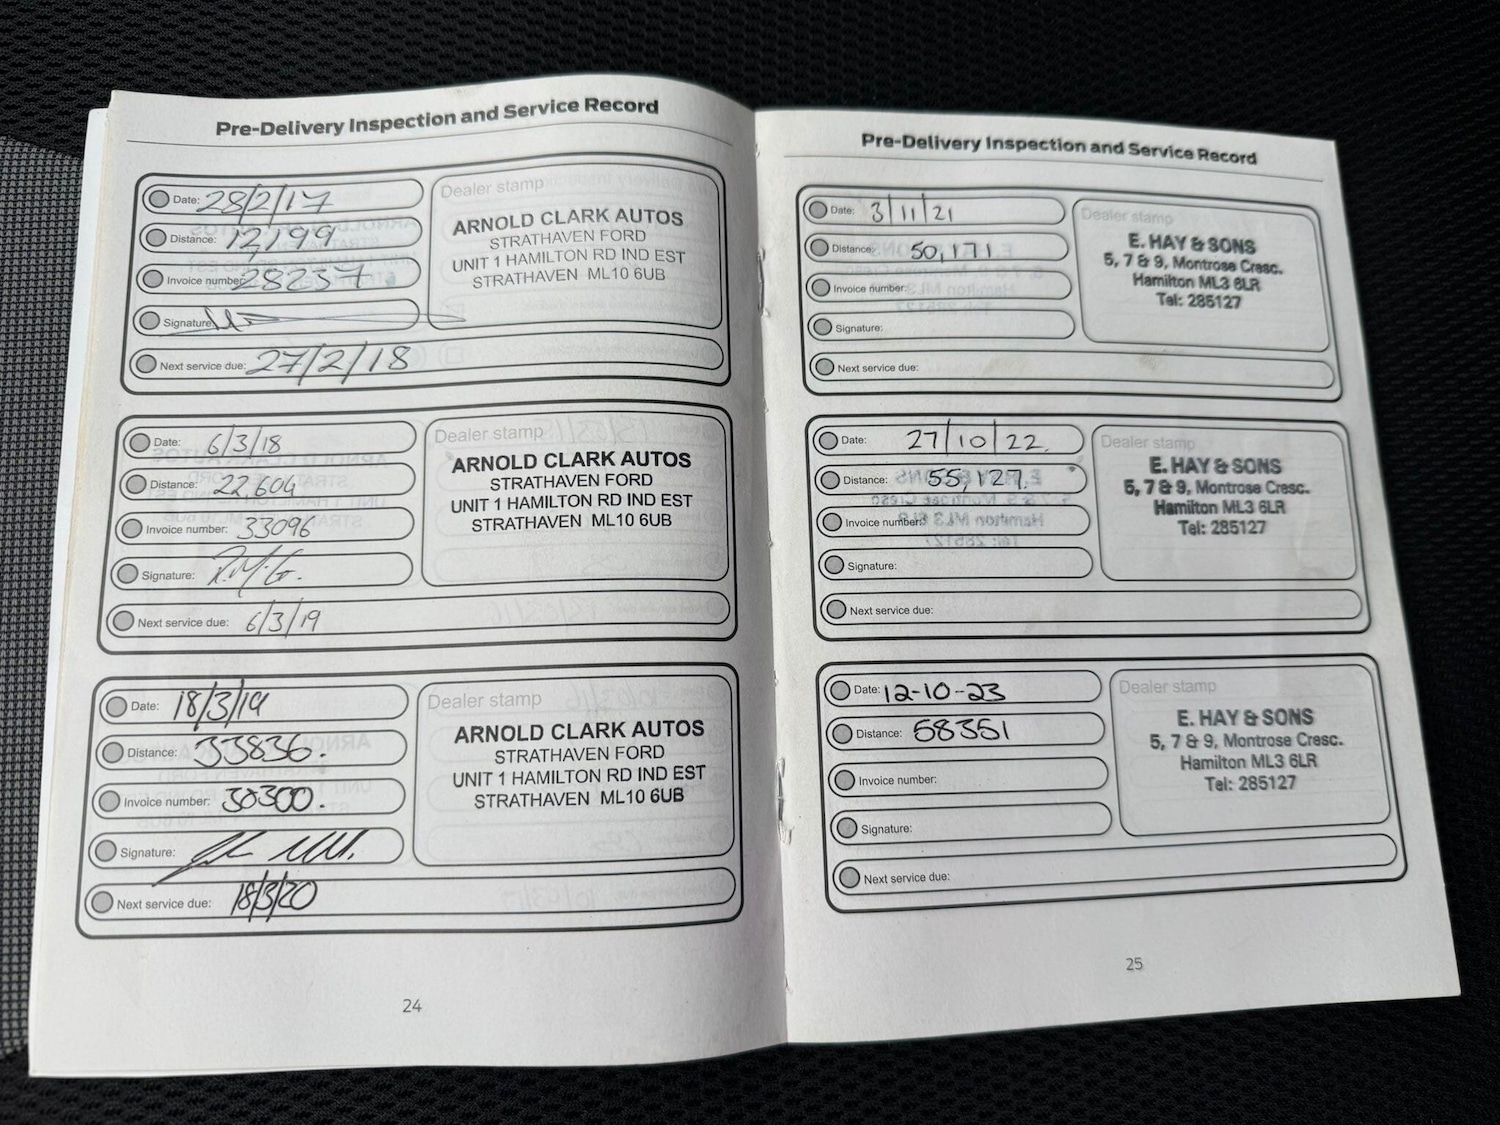 Pre-Delivery Inspection and Service Record
Date: 28/2/17
Distance: 12,199
Invoice number: 28237
Signature:
Next service due: 27/2/18
Dealer stamp
ARNOLD CLARK AUTOS
STRATHAVEN FORD
UNIT 1 HAMILTON RD IND EST
STRATHAVEN ML10 6UB
Date: 6/3/18
Distance: 22604
Invoice number: 33096
Signature:
Next service due: 6/3/19
Dealer stamp
ARNOLD CLARK AUTOS
STRATHAVEN FORD
UNIT 1 HAMILTON RD IND EST
STRATHAVEN ML10 6UB
Date: 18/3/19
Distance: 33836.
Invoice number: 30300.
Signature:
Next service due: 18/3/20
Dealer stamp
ARNOLD CLARK AUTOS
STRATHAVEN FORD
UNIT 1 HAMILTON RD IND EST
STRATHAVEN ML10 6UB
24
Pre-Delivery Inspection and Service Record
Date: 3/11/21
Distance: 50,171
Invoice number:
Signature:
Next service due:
Dealer stamp
E. HAY & SONS
5, 7 & 9, Montrose Cresc.
Hamilton ML3 6LR
Tel: 285127
Date: 27/10/22.
Distance: 55,127.
Invoice number:
Signature:
Next service due:
Dealer stamp
E. HAY & SONS
5, 7 & 9, Montrose Cresc.
Hamilton ML3 6LR
Tel: 285127
Date: 12-10-23
Distance: 58351
Invoice number:
Signature:
Next service due:
Dealer stamp
E. HAY & SONS
5, 7 & 9, Montrose Cresc.
Hamilton ML3 6LR
Tel: 285127
25